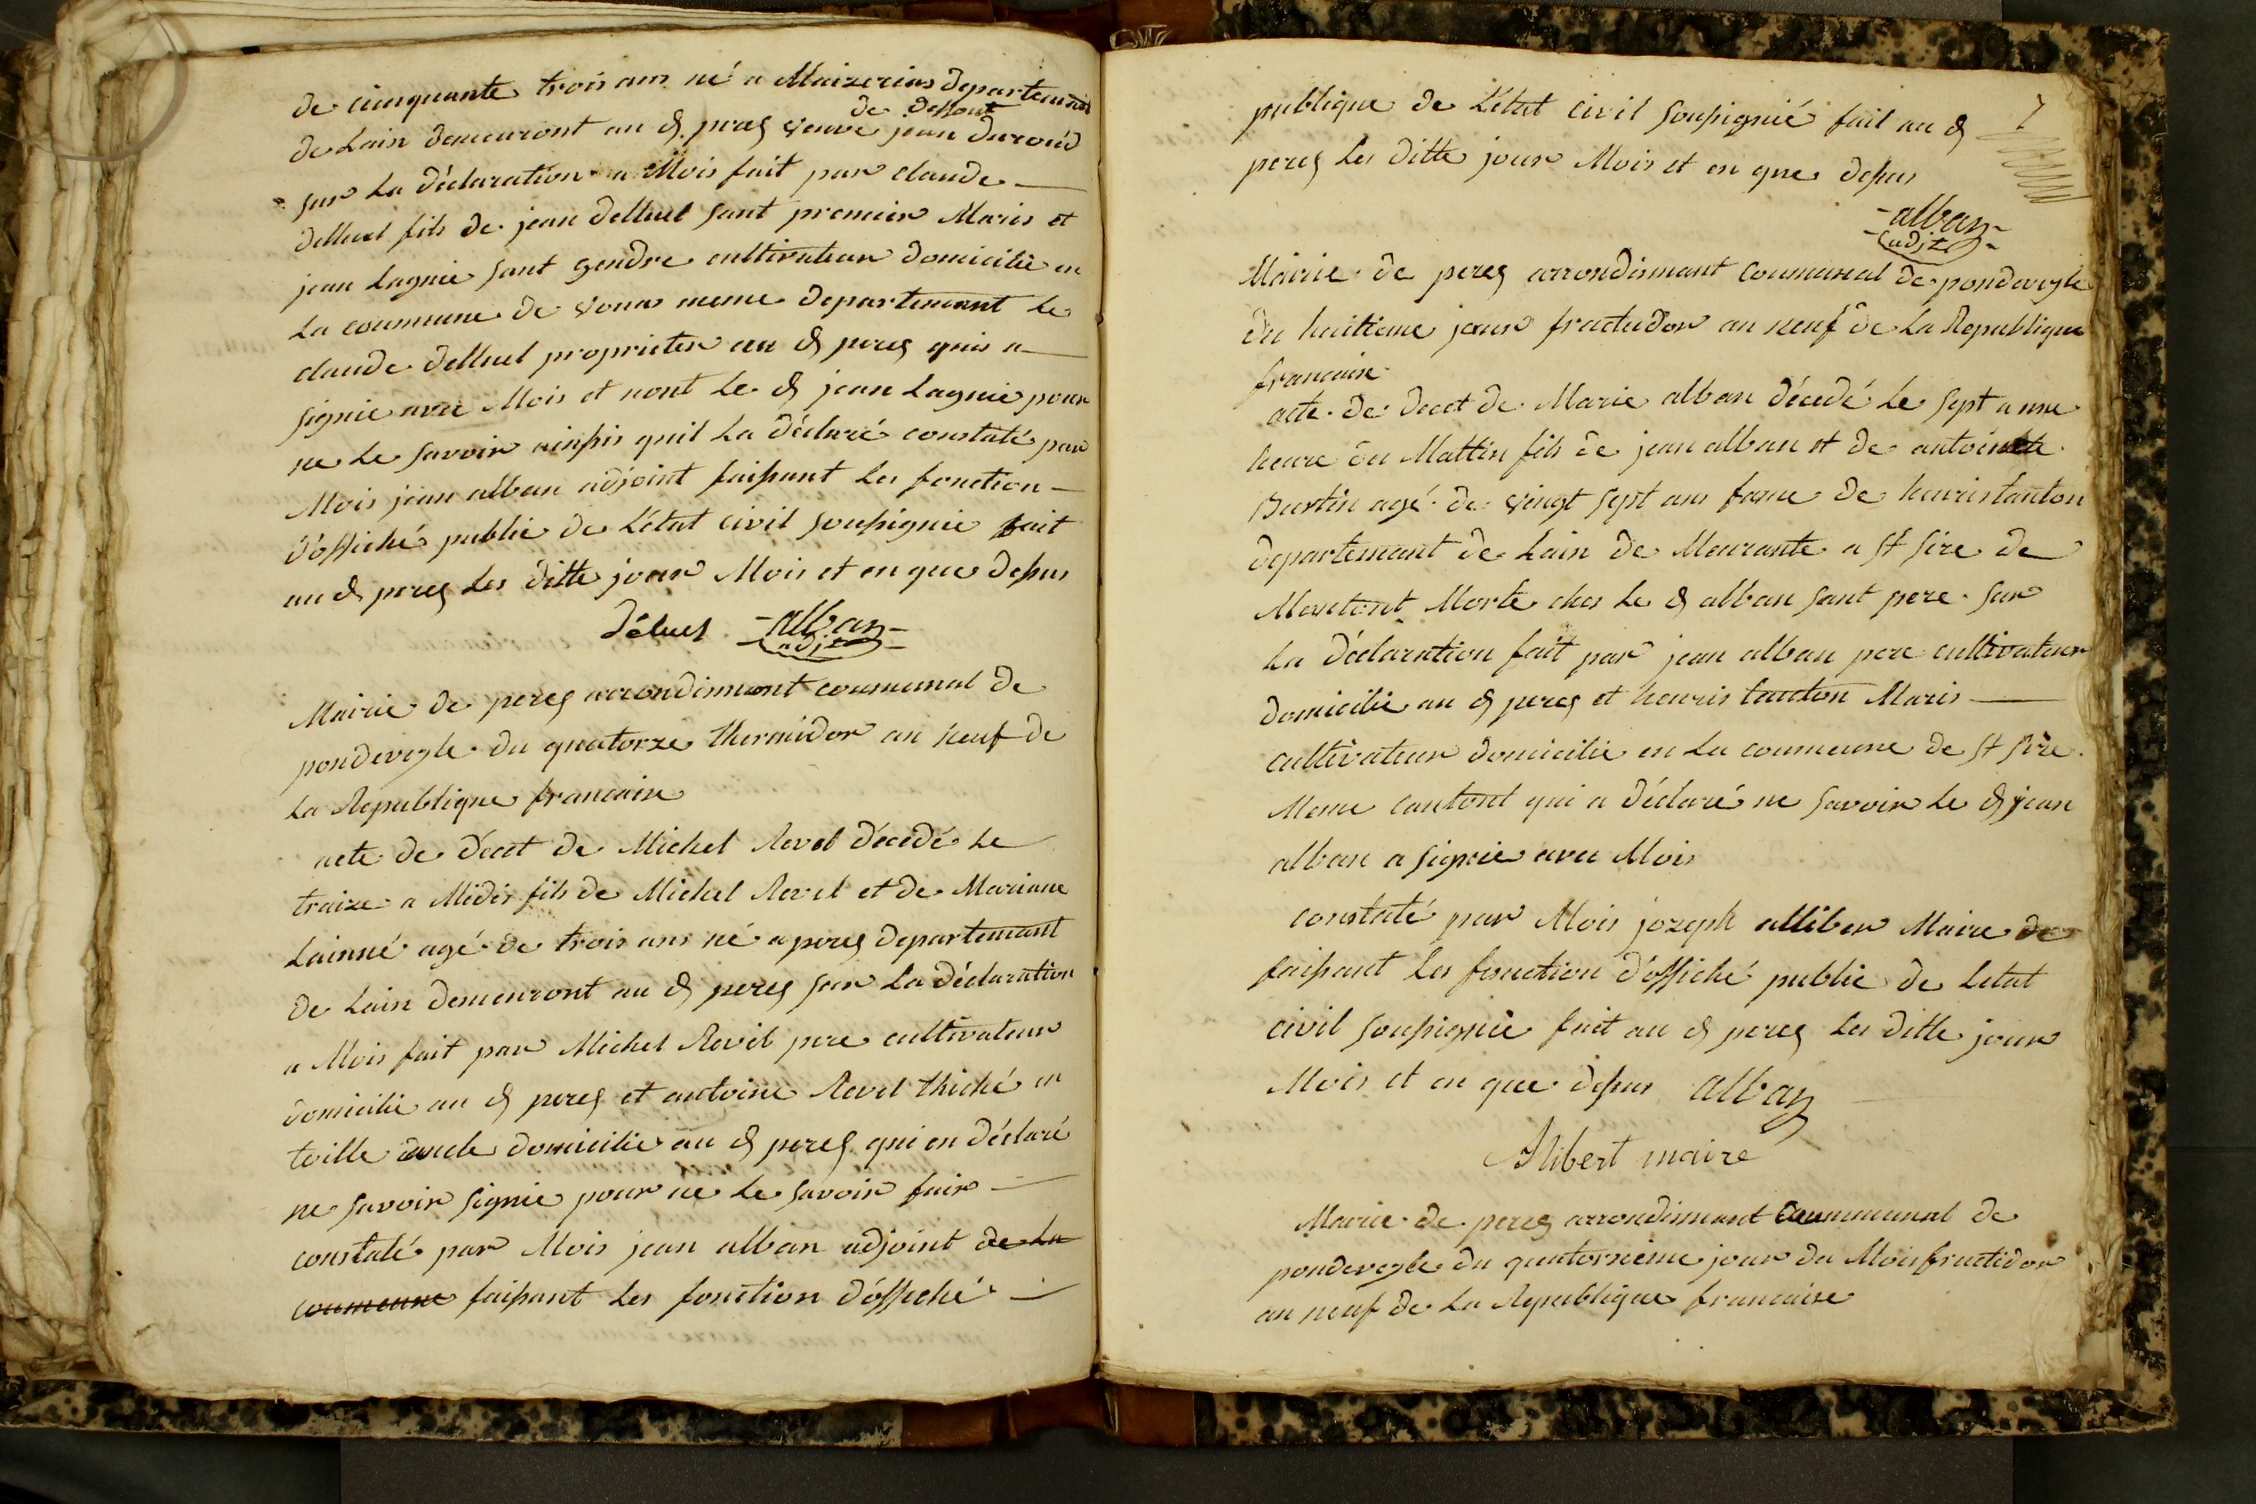 de cinquante trois ans né a Maizerias departemant
de Lain demeuront au d. peres veuve de deffout jean Duroud
sur La déclaration a Mois fait par claude
delluel fils de jean delluel sont premier Maris et
jean Lagnie sont gendre cultivateur domicilié en
La coummune de vonas meme departemant Le
claude delluel proprieter au d peres quis a
signie avec Mois et nont Le d jean Lagnie pour
ne Le savoir ainssis quil La déclaré constaté par
Mois jean alban adjoint faissant Les fonction
d'offiché public de L'état civil soussignie fait
au d peres Les ditte jour Mois et en que dessus
déluel alban
adjt
Mairie de peres arrondismant coumunal de
pondeveyle du quatorze thermidor an neuf de
La Republique francaise
acte de décet de Michel Revel décédé Le
traize a Midis fils de Michel Revel et de Mariane
Lainné agé de trois ans né a peres departemant
de Lain demeuront au d peres sur La déclaration
a Mois fait par Michel Revel pere cultivateur
domicilié au d peres et antoine Revel thiché en
toille oncle domicilie au d peres qui on déclaré
ne savoir signie pour ne Le savoir fair
constaté par Mois jean alban adjoint de La
coumeune faissant Les fonction d'offiché
publique de L'état civil soussignié fait au d
peres Les ditte jour Mois et en que dessus
7
alban
adjt
Mairie de peres arrondismant coumunal de pondeveyle
du huitieme jour fructudor an neuf de La Republique
francaise
acte de decet de Marie alban décedé Le sept a une
heure du Mattin fils de jean alban et de antoinette
Burtin agé de vingt sept ans fame de heuris tanton
departemant de Lain de Meurante a st sire de
Mentont Morte ches Le d alban sont pere sur
La déclaration fait par jean alban pere cultivateur
domicilie au d peres et heuris tanton Maris
cultivateur domicilie en La coumeune de st sire
Meme cantont qui a déclaré ne savoir Le d jean
alban a signie avec Mois
constaté par Mois jozeph alliber Maire de
faissant Les fonction d'offiché public de Letat
civil soussignie fait au d peres Les ditte jour
Mois et en que dessus alban
Alibert maire
Mairie de peres arrondismant coumunal de
pondeveyle du quatorsieme jour du Mois fructidor
an neuf de La Republique francaise